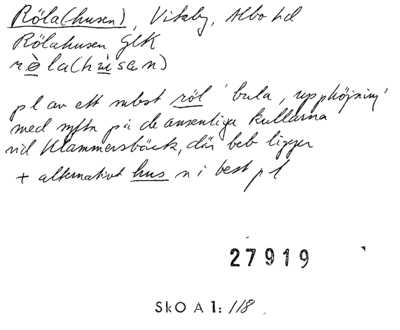 Röla(husen), Vitaby, Albo hd
Rölahusen GEK
rö̀la(hùsan)
pl av ett subst röl 'bula, upphöjning'
med syftn på de ansenliga kullarna
vid Klammersbäck, där beb ligger
+ alternativt hus n i best pl
27919
SkO A 1: 118